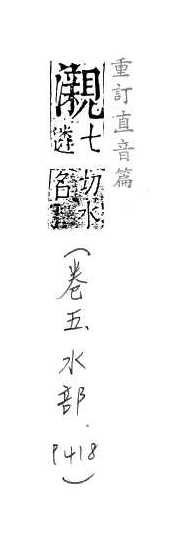 重訂直音篇
瀙七遴切水名
(卷五、水部.P418)